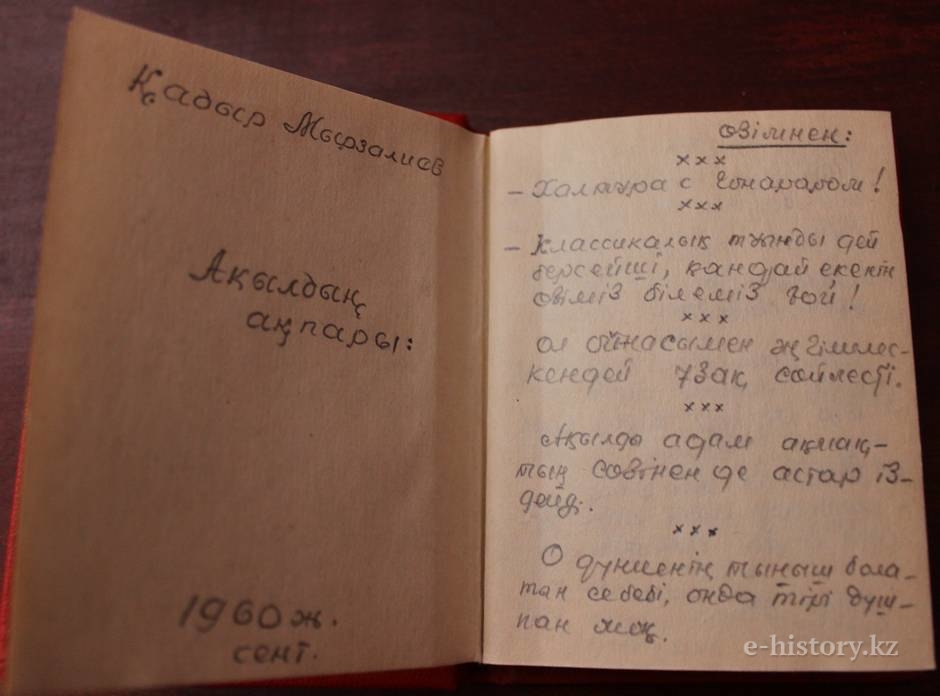 Қадыр Мырзалиев
Ақылдың
ақпары:
1960 ж.
сент.
өзімнен:
× × ×
– Халтура с гонораром!
× × ×
– Классикалық туынды дей
берсейші, қандай екенін
өзіміз білеміз ғой!
× × ×
ол айнасымен әңгімелес-
кендей ұзақ сөйлесті.
× × ×
Ақылды адам ақмақ-
тың сөзінен де астар із-
дейді.
× × ×
О дүниенің тыныш бола-
тын себебі, онда тірі душ-
пан жоқ.
e-history.kz